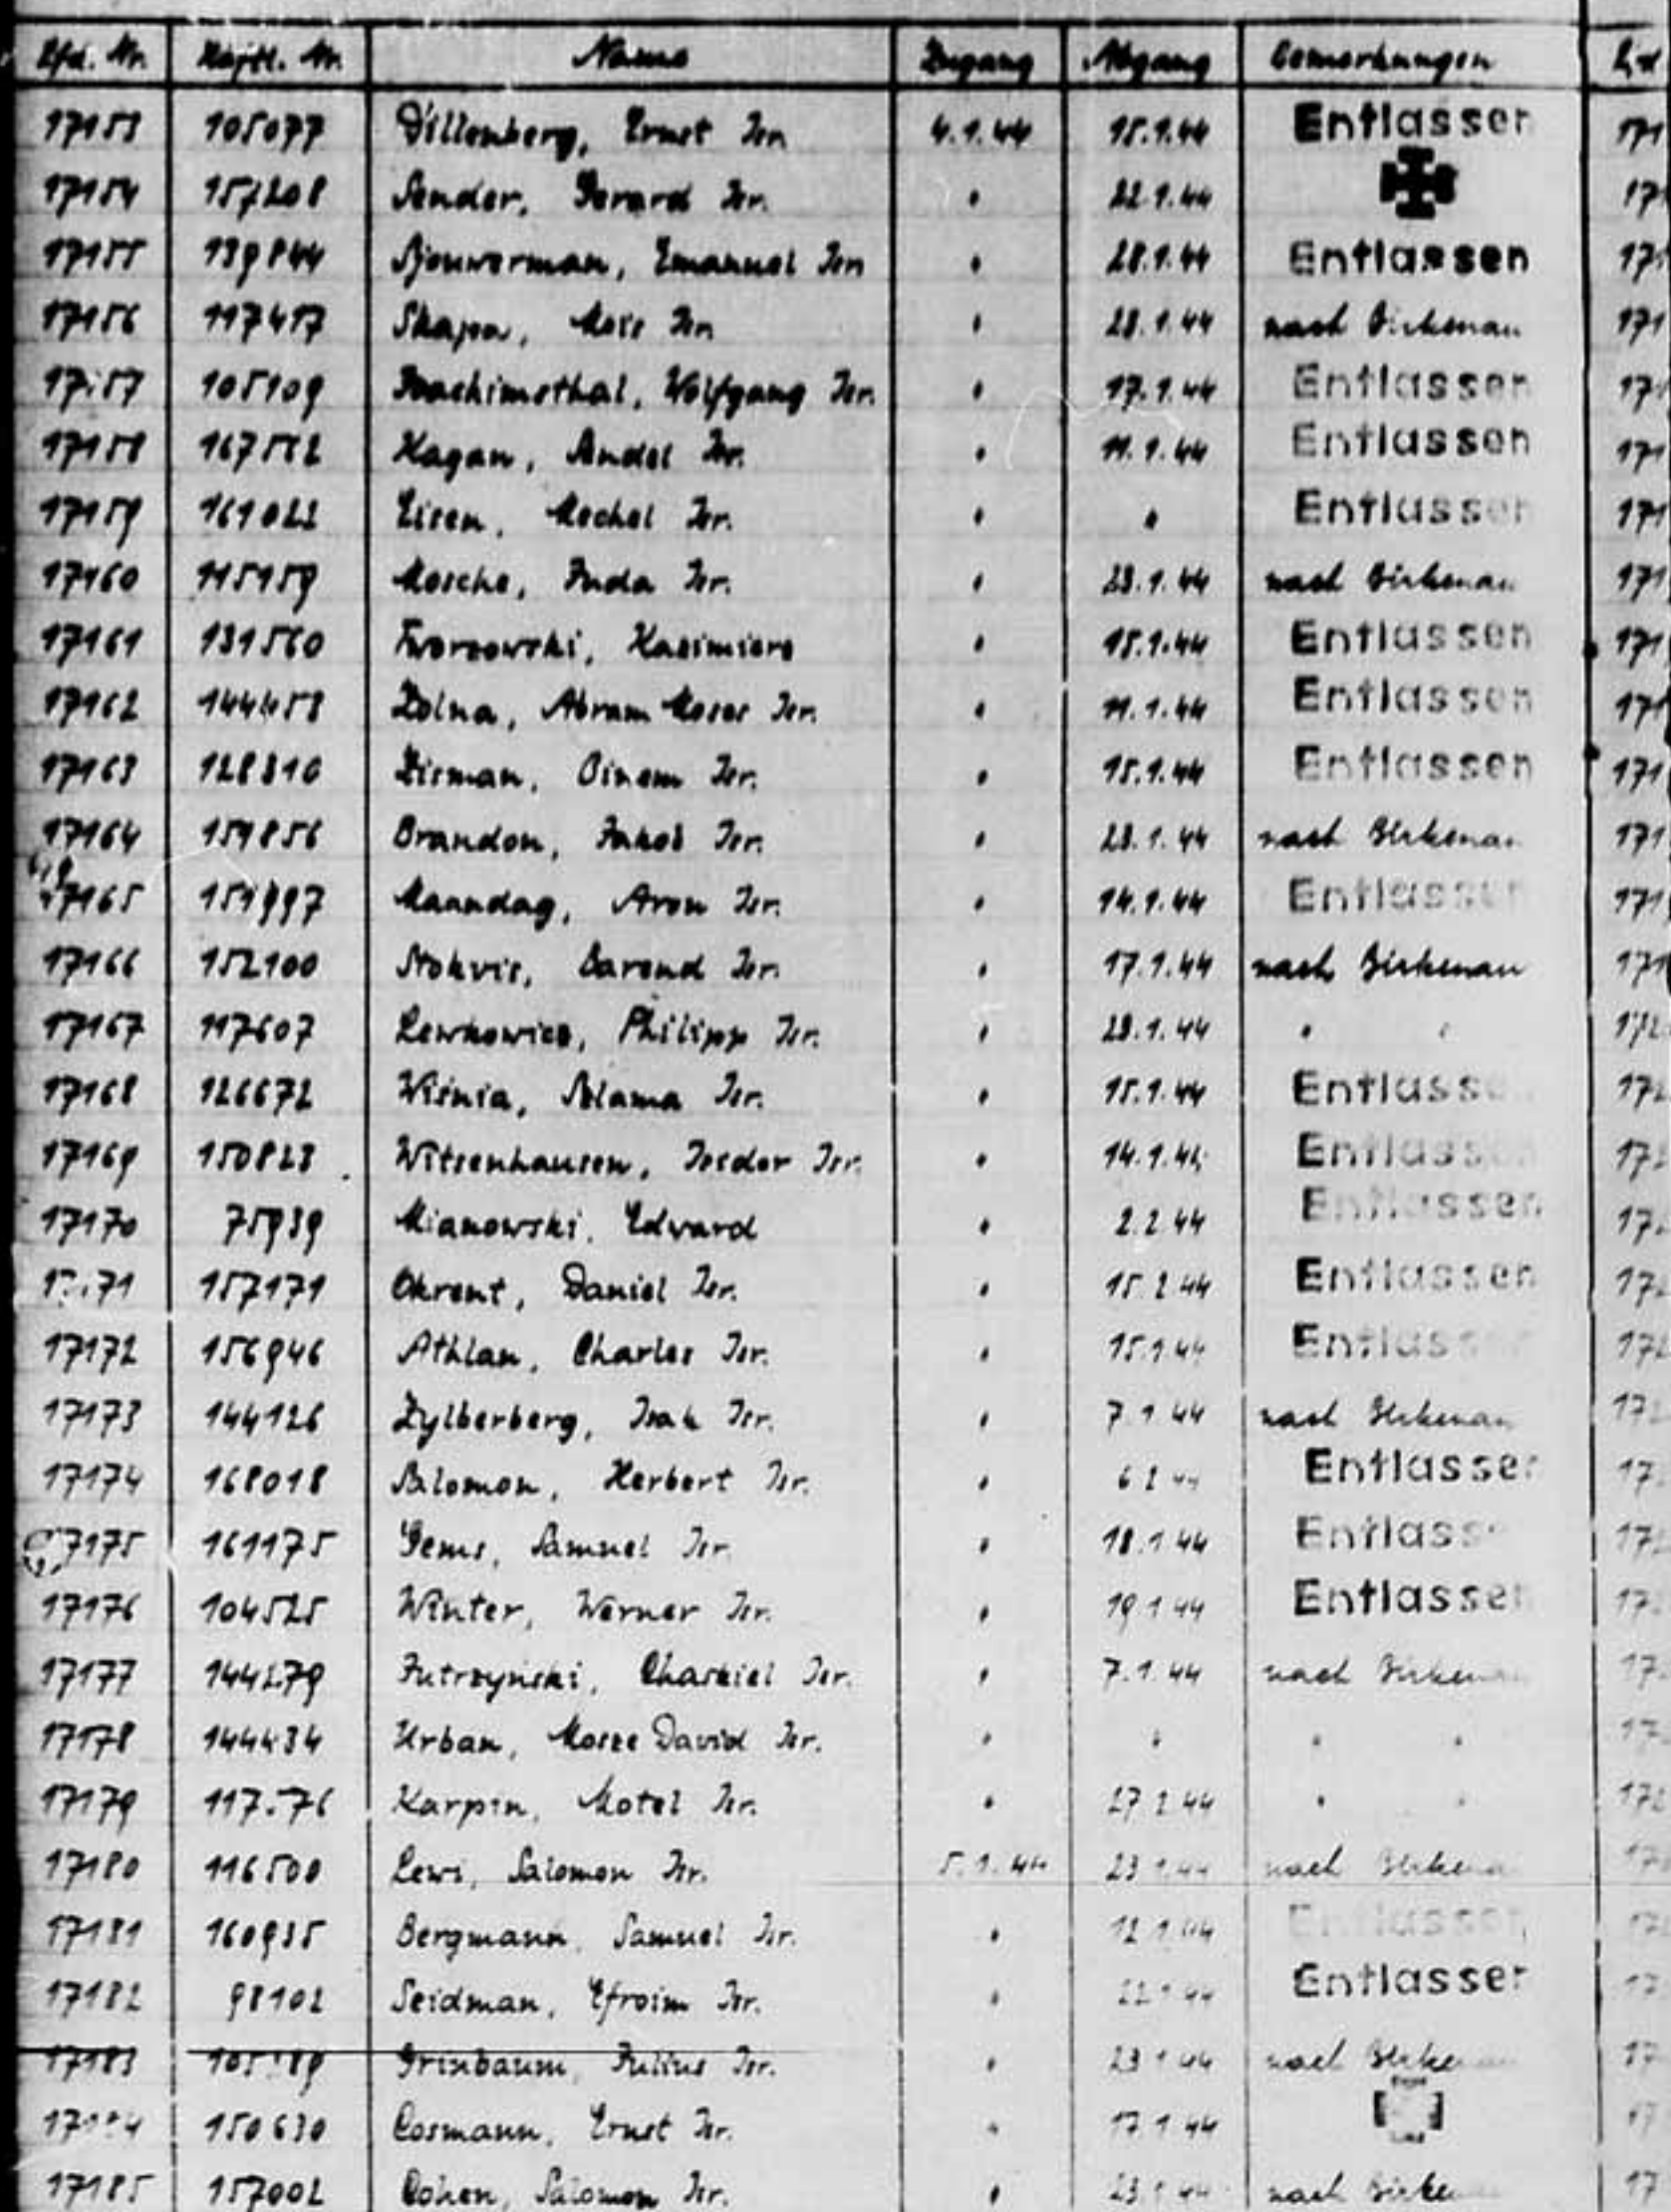 Lfd. Nr. Häftl. Nr. Name Zugang Abgang Bemerkungen
17153 105077 Dillenberg, Ernst Isr. 4.1.44 15.1.44 Entlassen
17154 157208 Sender, Gerard Isr. " 22.1.44
17155 139844 Sjouwerman, Emanuel Isr. " 28.1.44 Entlassen
17156 117417 Skapa, Isr. " 28.1.44 nach Birkenau
17157 105109 Joachimsthal, Wolfgang Isr. " 17.1.44 Entlassen
17158 Kagan, Andel Isr. " 11.1.44 Entlassen
17159 161022 Eisen, Mechel Isr. " " Entlassen
17160 115159 Mosche, Juda Isr. " 28.1.44 nach Birkenau
17161 131560 Tworzowski, Kasimierz " 15.1.44 Entlassen
17162 144458 Zolna, Abram Moses Isr. " 11.1.44 Entlassen
17163 128310 Zisman, Isr. " 15.1.44 Entlassen
17164 159856 Brandon, Jakob Isr. " 28.1.44 nach Birkenau
17165 Maandag, Aron Isr. " 14.1.44 Entlassen
17166 152100 Stokvis, Barend Isr. " 17.1.44 nach Birkenau
17167 117607 Lewkowicz, Philipp Isr. " 28.1.44 " "
17168 126672 Wisnia, Salama Isr. " 15.1.44 Entlassen
17169 150823 Witsenhausen, Isedor Isr. " 14.1.44 Entlassen
17170 75939 Mianowski, Edward " 2.2.44 Entlassen
17171 157171 Okrent, Daniel Isr. " 15.2.44 Entlassen
17172 156946 Athlan, Charles Isr. " 15.1.44 Entlassen
17173 144126 Zylberberg, Isak Isr. " 7.1.44 nach Birkenau
17174 168018 Salomon, Herbert Isr. " 6.2.44 Entlassen
17175 161175 Gems, Samuel Isr. " 18.1.44 Entlassen
17176 104525 Winter, Werner Isr. " 19.1.44 Entlassen
17177 144279 Jutrzyński, Chaskiel Isr. " 7.1.44 nach Birkenau
17178 144434 Urban, Mosze David Isr. " " " "
17179 Karpin, Motel Isr. " 27.2.44 " "
17180 116500 Lewi, Salomon Isr. 5.1.44 23.1.44 nach Birkenau
17181 160935 Bergmann, Samuel Isr. " 12.1.44 Entlassen
17182 98102 Seidman, Efroim Isr. " 22.1.44 Entlassen
17183 Grinbaum, Julius Isr. " 23.1.44 nach Birkenau
150630 Cosmann, Ernst Isr. " 17.1.44
17185 157002 Cohen, Salomon Isr. " 23.1.44 nach Birkenau